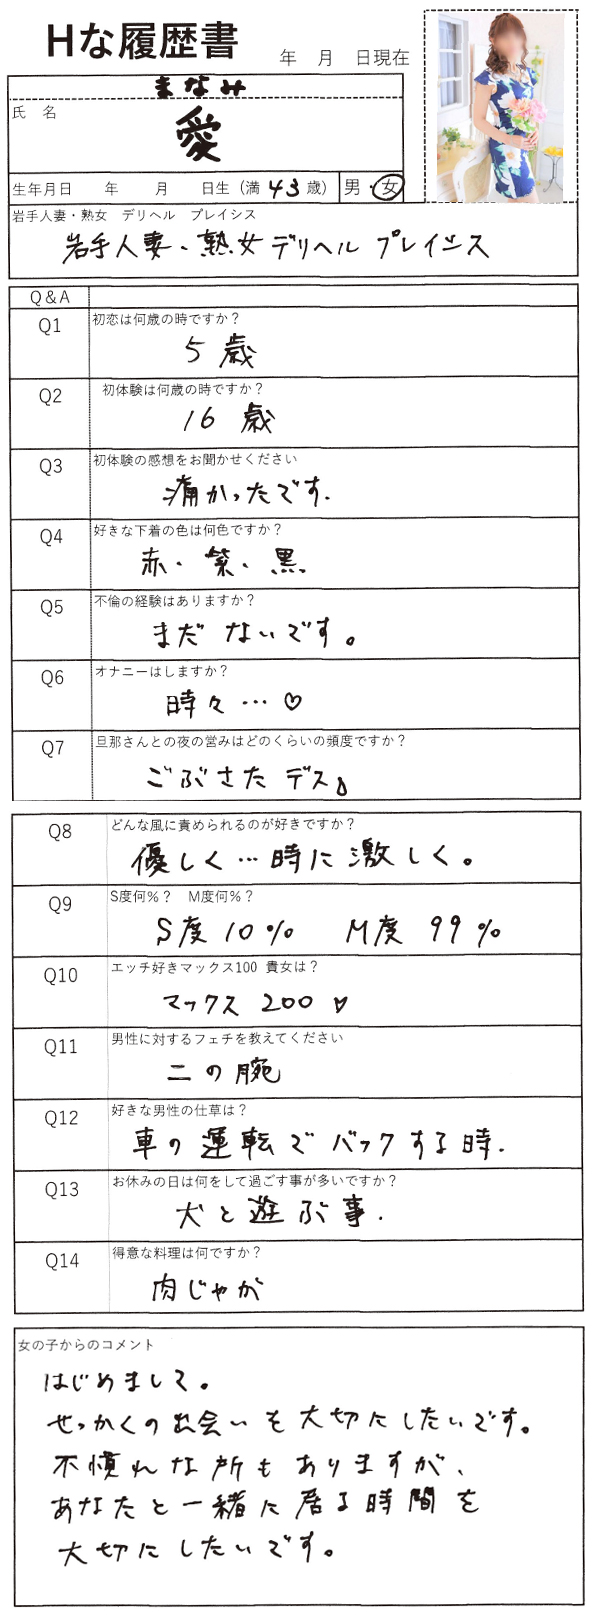 Hな履歴書
年 月 日現在
まなみ
氏 名
愛
生年月日 年 月 日生 (満 43 歳) 男・女
岩手人妻・熟女 デリヘル プレイシス
岩手人妻・熟女デリヘル プレイシス
Q&A
Q1 初恋は何歳の時ですか?
5歳
Q2 初体験は何歳の時ですか?
16歳
Q3 初体験の感想をお聞かせください
痛かったです.
Q4 好きな下着の色は何色ですか?
赤・紫・黒
Q5 不倫の経験はありますか?
まだないです。
Q6 オナニーはしますか?
時々…♡
Q7 旦那さんとの夜の営みはどのくらいの頻度ですか?
ごぶさたデス。
Q8 どんな風に責められるのが好きですか?
優しく…時に激しく。
Q9 S度何%? M度何%?
S度10% M度99%
Q10 エッチ好きマックス100 貴女は?
マックス200♡
Q11 男性に対するフェチを教えてください
二の腕
Q12 好きな男性の仕草は?
車の運転でバックする時.
Q13 お休みの日は何をして過ごす事が多いですか?
犬と遊ぶ事.
Q14 得意な料理は何ですか?
肉じゃが
女の子からのコメント
はじめまして。
せっかくの出会いを大切にしたいです。
不慣れな所もありますが、
あなたと一緒に居る時間を
大切にしたいです。